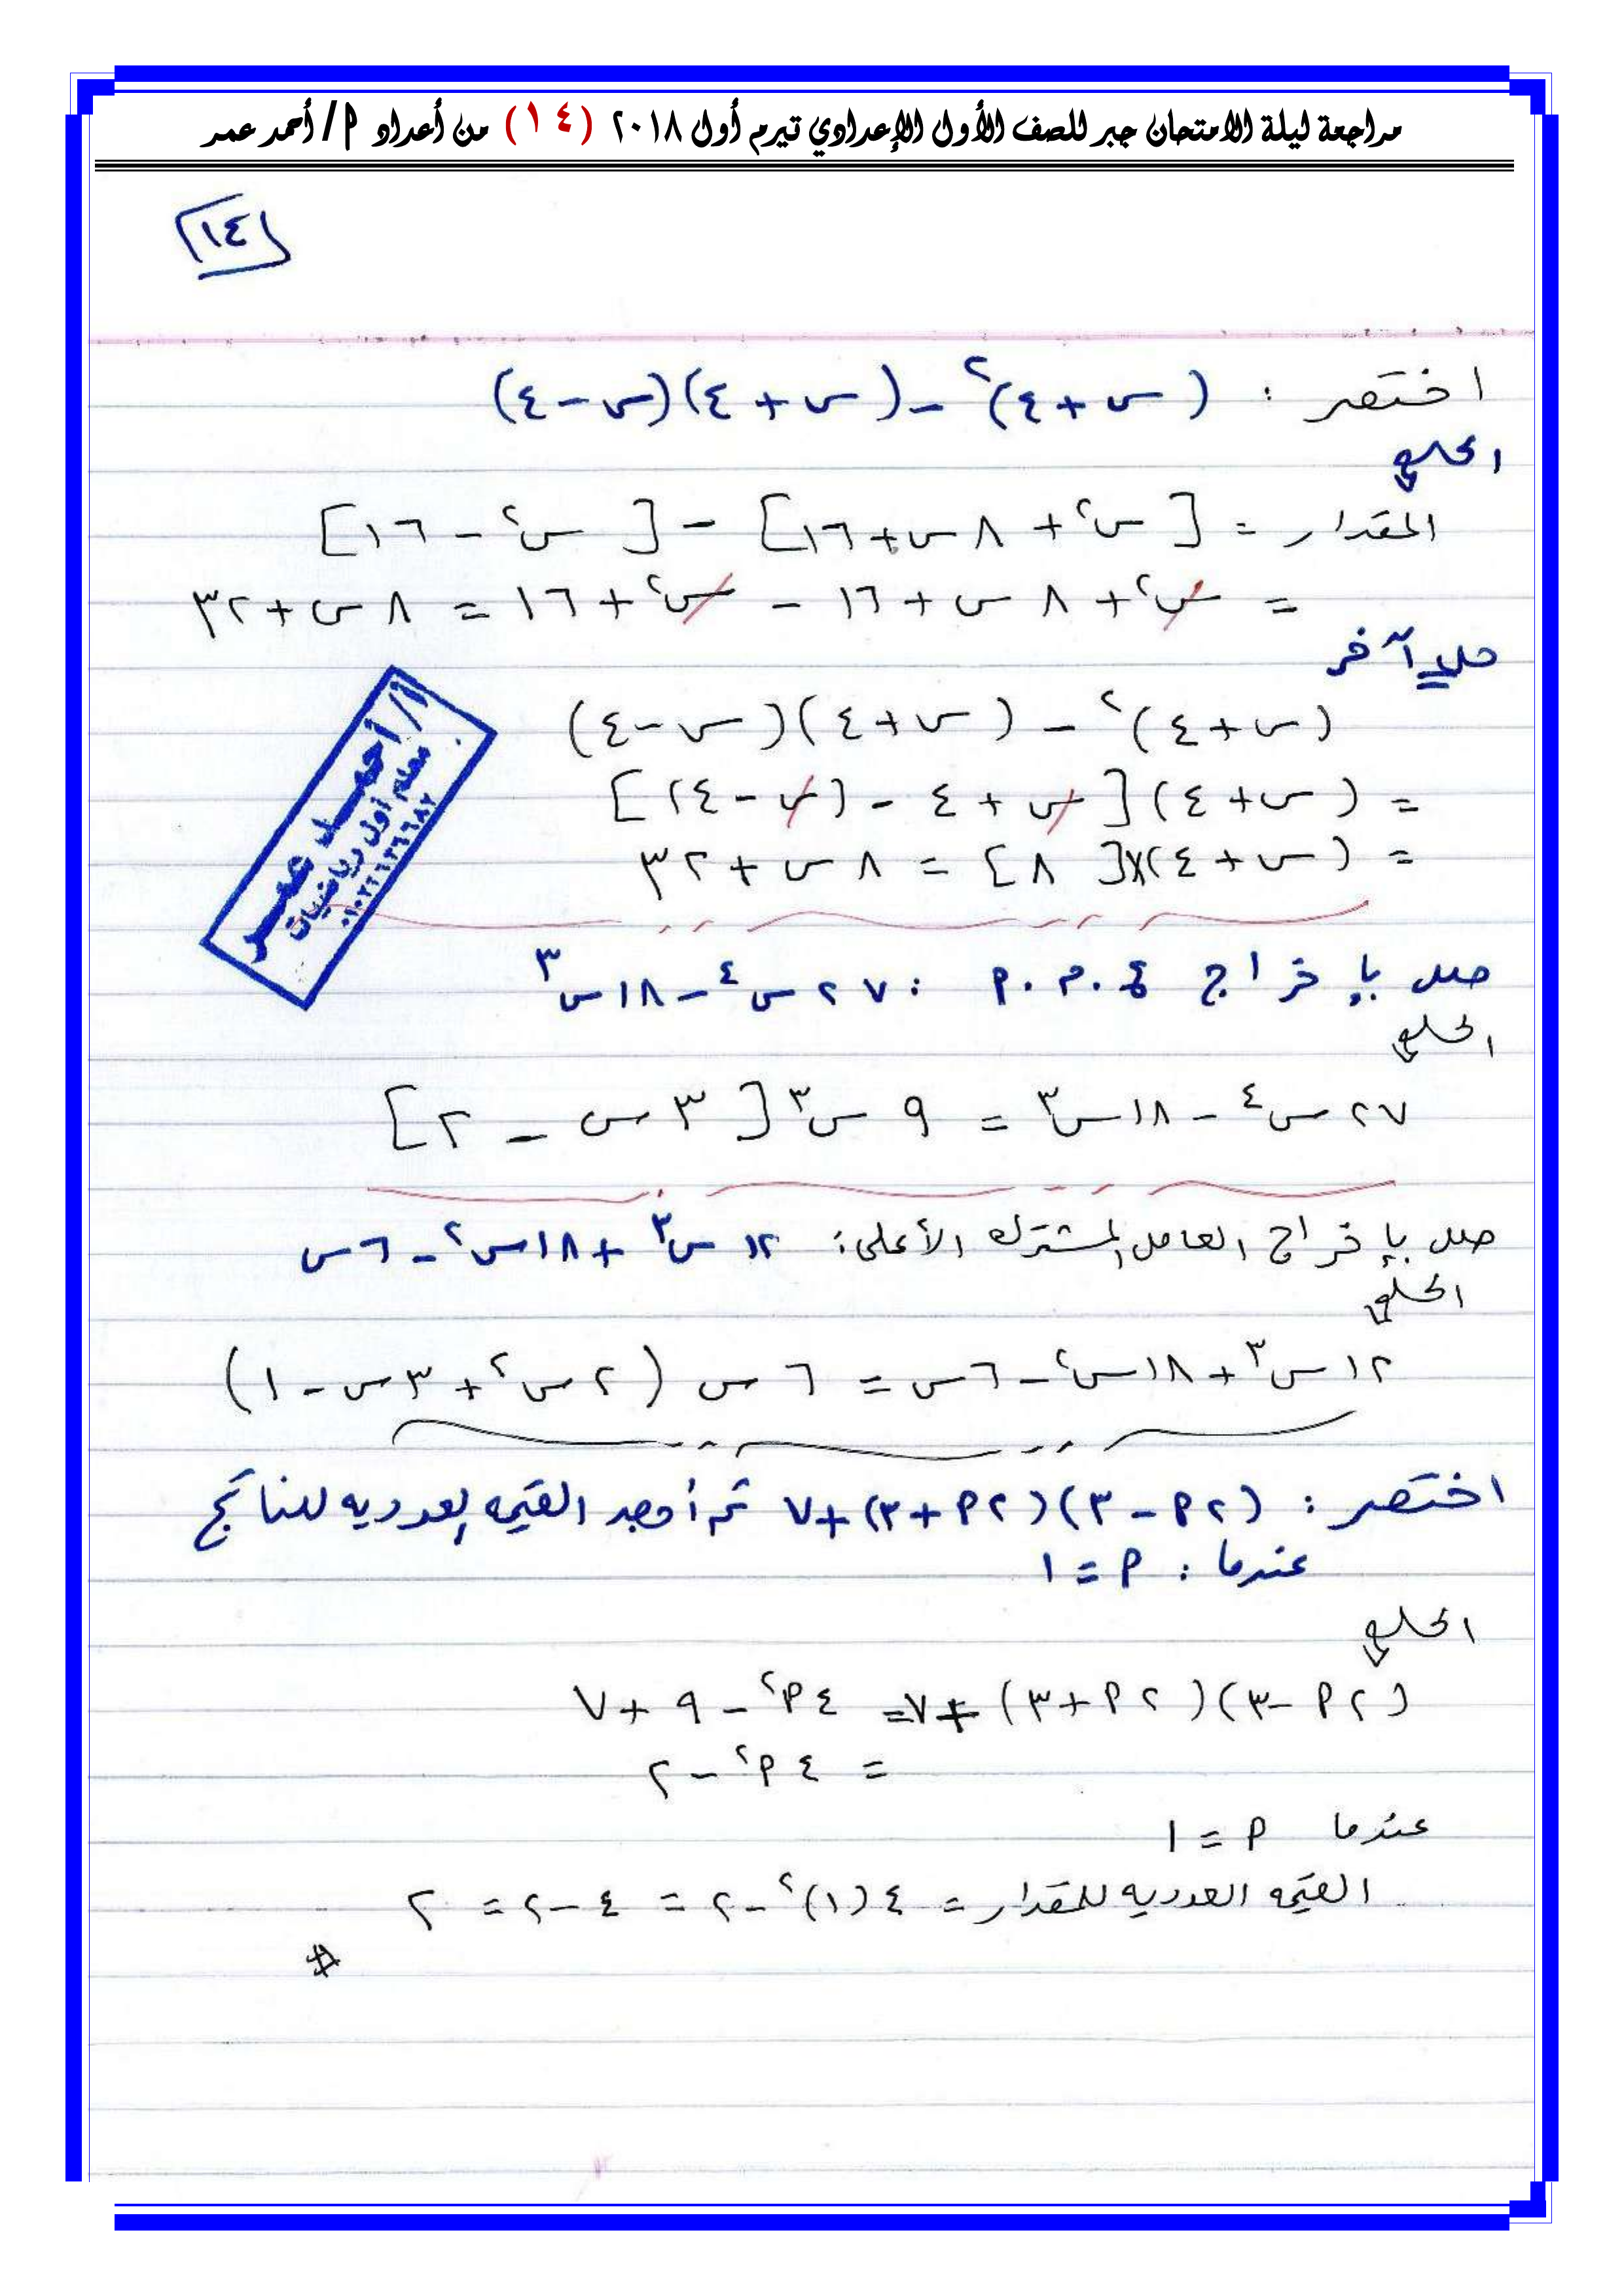 مراجعة ليلة الامتحان جبر للصف الأول الإعدادي تيرم أول ٢٠١٨ (١٤) من أعداد م / أحمد عمر
١٤
اختصر : (س + ٤)² - (س + ٤)(س - ٤)
الحل
المقدار = [س² + ٨س + ١٦] - [س² - ١٦]
= س² + ٨س + ١٦ - س² + ١٦ = ٨س + ٣٢
حل آخر
(س + ٤)² - (س + ٤)(س - ٤)
= (س + ٤)[س + ٤ - (س - ٤)]
= (س + ٤)×[٨] = ٨س + ٣٢
أ/ أحمد عمر
معلم أول رياضيات
حلل بإخراج ع.م.أ : ٢٧س⁴ - ١٨س³
الحل
٢٧س⁴ - ١٨س³ = ٩س³[٣س - ٢]
حلل بإخراج العامل المشترك الأعلى: ١٢س³ + ١٨س² - ٦س
الحل
١٢س³ + ١٨س² - ٦س = ٦س(٢س² + ٣س - ١)
اختصر : (٢م - ٣)(٢م + ٣) + ٧ ثم أوجد القيمه العدديه للناتج
عندما : م = ١
الحل
(٢م - ٣)(٢م + ٣) + ٧ = ٤م² - ٩ + ٧
= ٤م² - ٢
عندما م = ١
القيمه العدديه للمقدار = ٤(١)² - ٢ = ٤ - ٢ = ٢
#